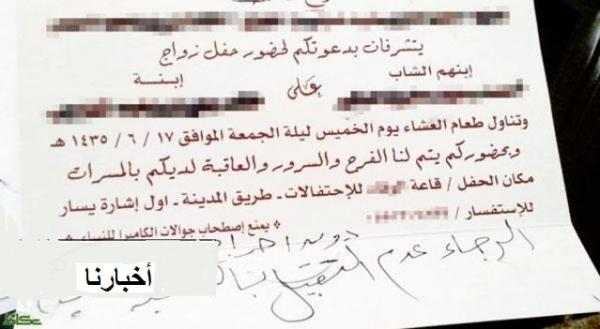 يتشرفان بدعوتكم لحضور حفل زواج
إبنهم الشاب إبنـة
على
وتناول طعام العشاء يوم الخميس ليلة الجمعة الموافق ١٧ / ٦ / ١٤٣٥ هـ
وبحضوركم يتم لنا الفرح والسرور والعاقبة لديكم بالمسرات
مكان الحفل / قاعة للإحتفالات - طريق المدينة - اول إشارة يسار
للإستفسار /
* يمنع إصطحاب جوالات الكاميرا للنساء *
الرجاء عدم
أخبارنا
عكاظ